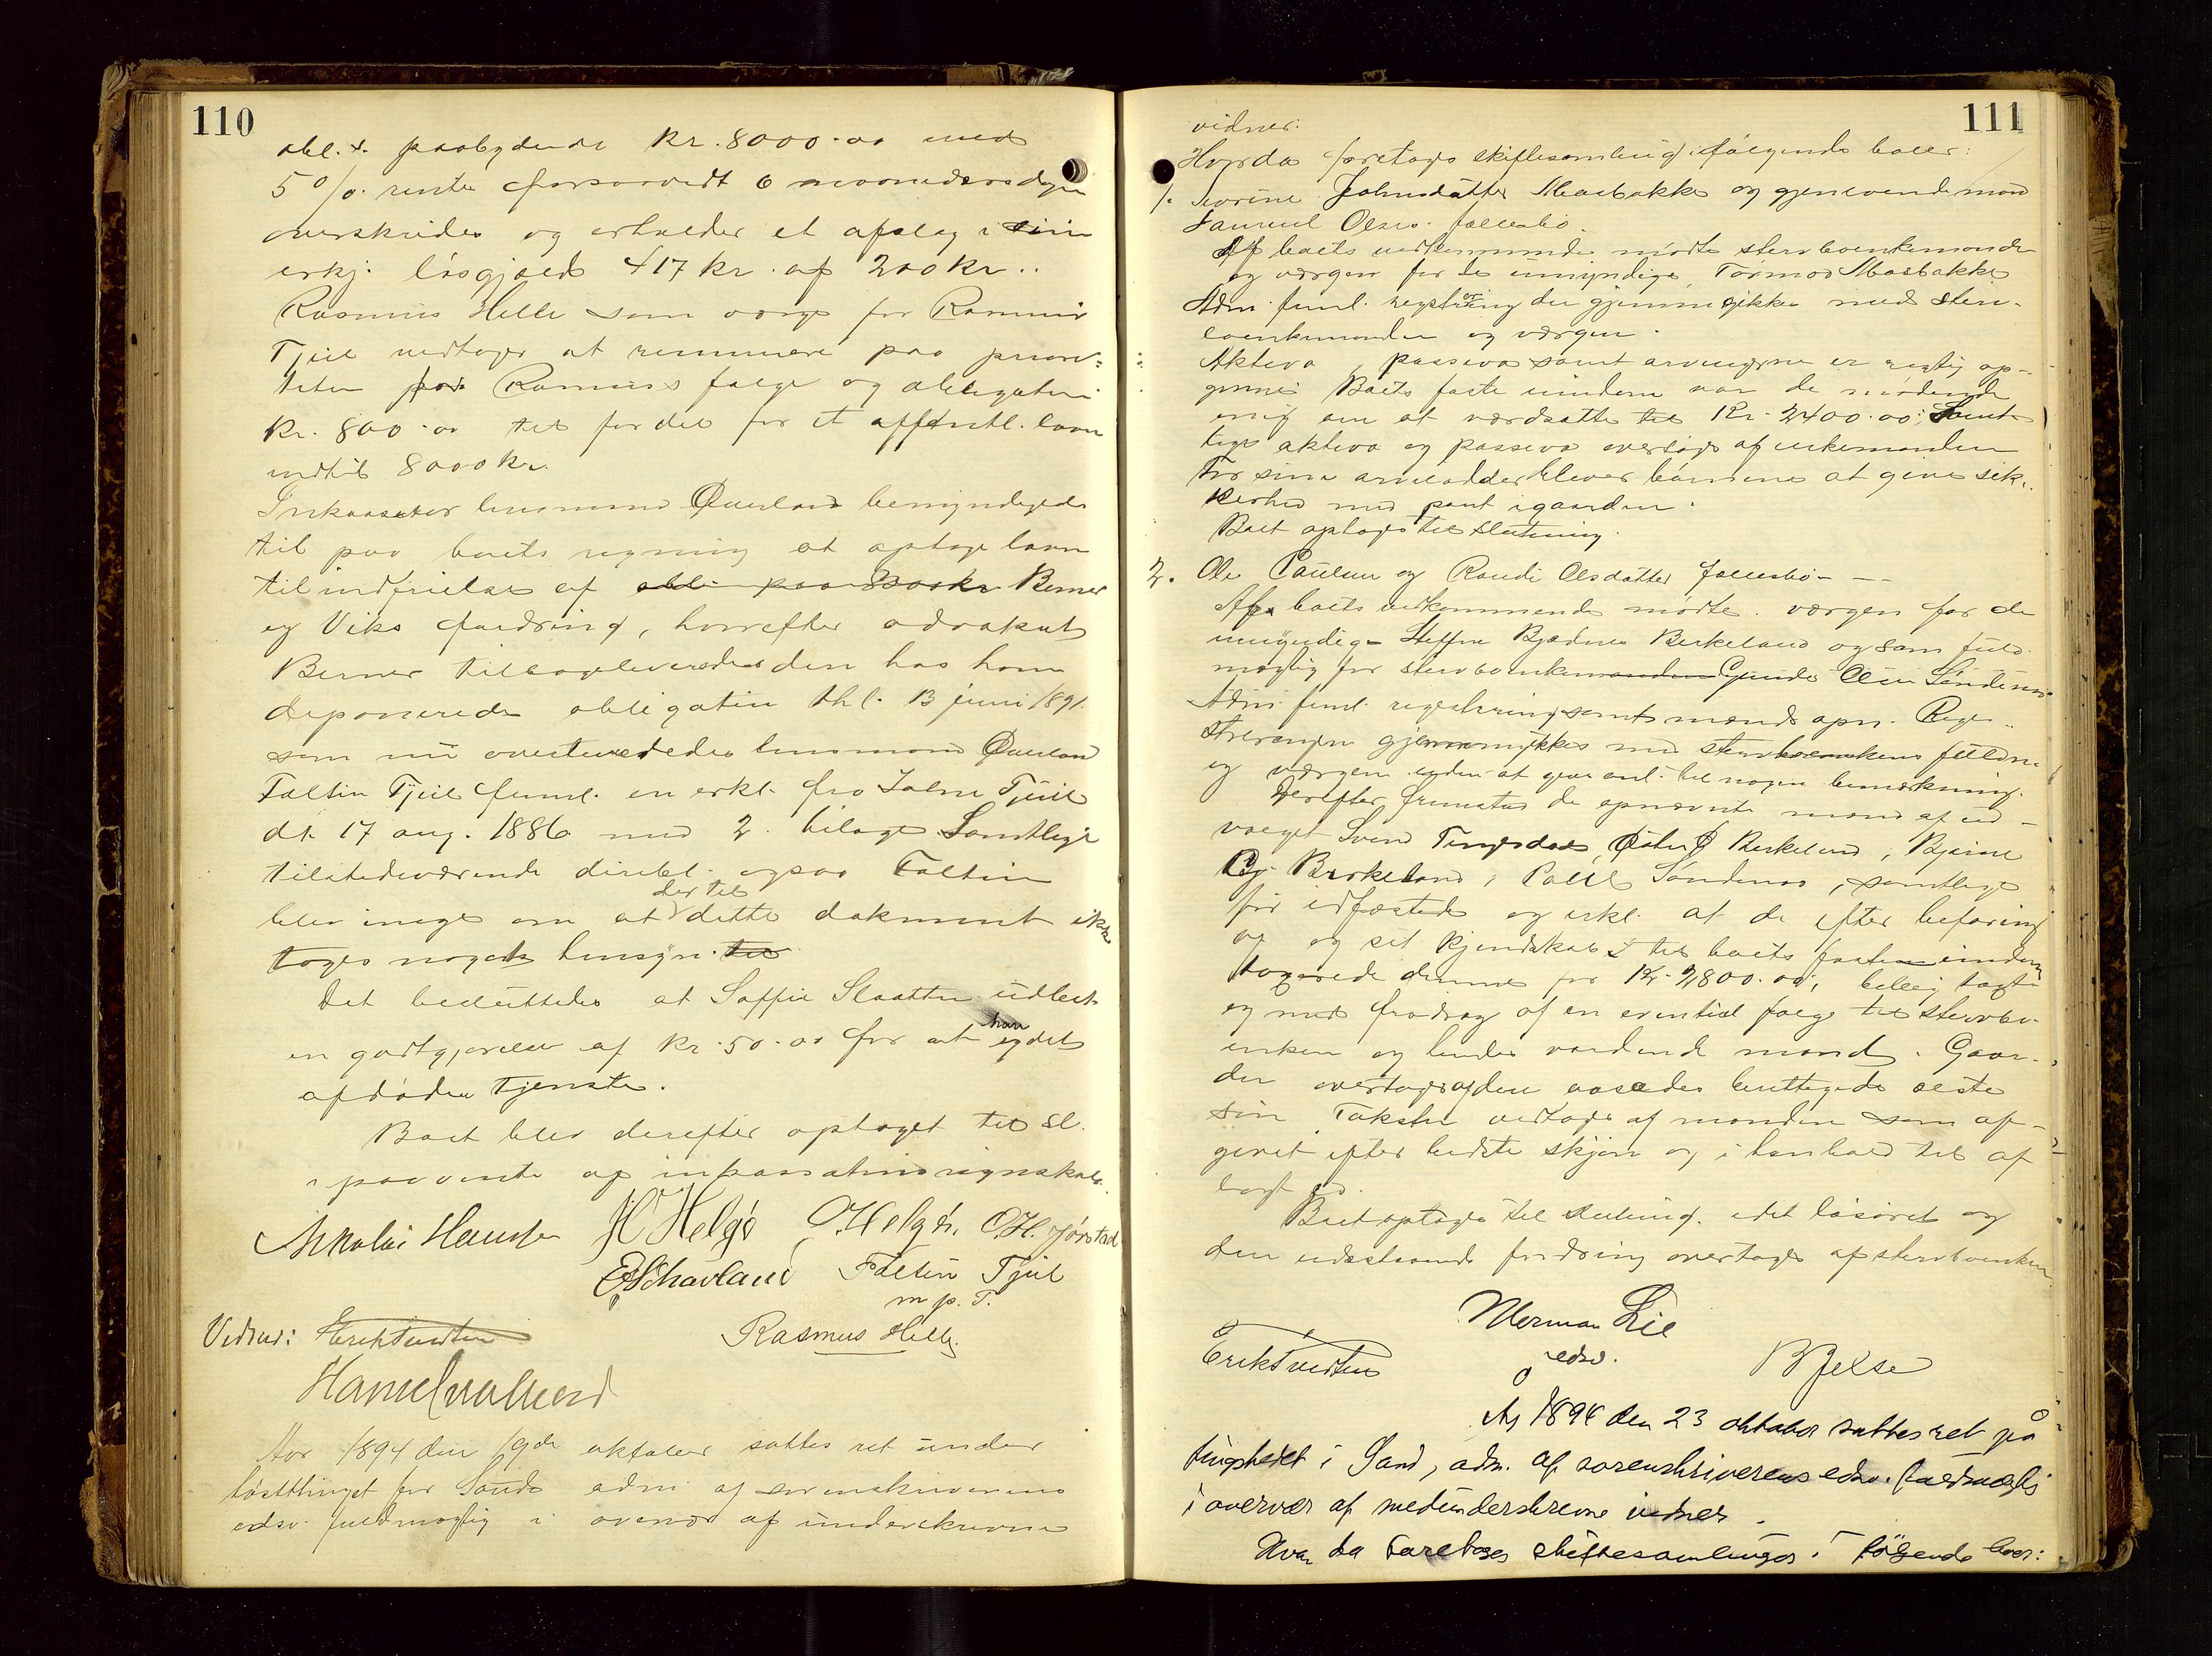 110
obl. s. paalydende Kr. 8000.00 med
5 % rente forsaavidt 6 maanedersdagen
overskrides og erholder et afslag i sin
erkj. løsgjæld 417 kr. af 200 kr..
Rasmus Helle som værge for Rasmus
Tjul vedtager at rømmere paa priori-
teten for Rasmus's falge og obligation
Kr. 800.00 til fordel for et offentl. laan
indtil 8000 Kr.
Inkassator lensmand Qualand bemyndigedes
til paa boets regning at optage laan
til indfrielse af obl. paa 8000 kr Berner
og Viks fordring, hvorefter advokat
Berner tilbageleverede den hos ham
deponerede obligation thl. 13 juni 1891
som nu overleveredes lensmand Qualand
Faltin Tjul freml. en erkl. fra Johs Tjul
dt. 17 aug. 1886 med 2 bilage. Samtlige
tilstedeværende direkt. ogsaa Faltin
blev enige om at der til dette dokument ikke
toges noget hensyn til
Det besluttedes at Soffie Slaatten udbet.
en godtgjørelse af kr. 50.00 for at han ydet
afdøde tjeneste.
Boet blev derefter optaget til sl.
i paavente af inkassationsregnskab.
Nikolai Hansen H Helgø O Helgø. O.H. Hjørstad
E Schavland Faltin Tjul
m. p. T.
Vidner: Erik Tvedten Rasmus Helle
Hans
Aar 1894 den 19de oktober sattes ret under
høstthinget for Sands adm af sorenskriverens
edsv. fuldmægtig i overvær af underskrevne
111
vidner:
Hvorda foretages skiftesamling i følgende boer:
1. Severine Johnsdatter Moebakke og gjenlevende mand
Samuel Olsen Fallesbø.
Af boets vedkommende mødte stervboenkemanden
og værgen for de umyndige Tormod Moebakke
Adm. freml. registrering der gjennemgikkes med sterv-
boenkemanden og værgen.
Aktiva, passiva samt arvingerne er rigtig op-
givne. Boets faste eiendom var de mødende
enig om at værdsætte til Kr. 2400.00; Samt-
lige aktiva og passiva overtages af enkemanden
For sine arvelodder bliver børnene at give sik-
kerhed med pant i gaarden.
Boet optages til slutning.
2. Ole Paulsen og Randi Olsdatter Fallesbø - --
Af boets vedkommende mødte værgen for de
umyndige Steffen Bjødnes Birkeland og som fuld-
mægtig for stervboenkemanden Gunde Olsen Søndenaa
Adm. freml. registrering samt mænds opn. Regi-
streringen gjennemgikkes med stervboenkens fuldm.
og værgen uden at give anl. til nogen bemærkning.
Derefter fremstod de opnævnte mænd af ud-
valget Svend Tengesdal, Østen Ø Birkeland, Bjarne
Bj. Birkeland, Paul Søndenaa, samtlige
før edfæstede og erkl. at de efter befaring
og sit kjendskab til boets faste eiendom
taxerede denne for Kr. 2,800.00, billig taxt
og med fradrag af en eventuel falge til stervbo-
enken og hendes vordende mand. Gaar-
den overtages af den aasædes berettigede ældste
søn. Taksten vedtages af mændene som af-
givet efter bedste skjøn og i henhold til af
lagt ed.
Boet optages til slutning. idet løsøret og
den udestaaende fordring overtages af stervboenken
Herman Lie
edsv.
Erik Tvedten B Jelse
År 1894 den 23 oktober sattes ret på
tingstedet i Sand, adm. af sorenskriverens edsv. fuldmægtig
i overvær af medunderskrevne vidner.
Hvor da foretages skiftesamlinger i følgende boer: